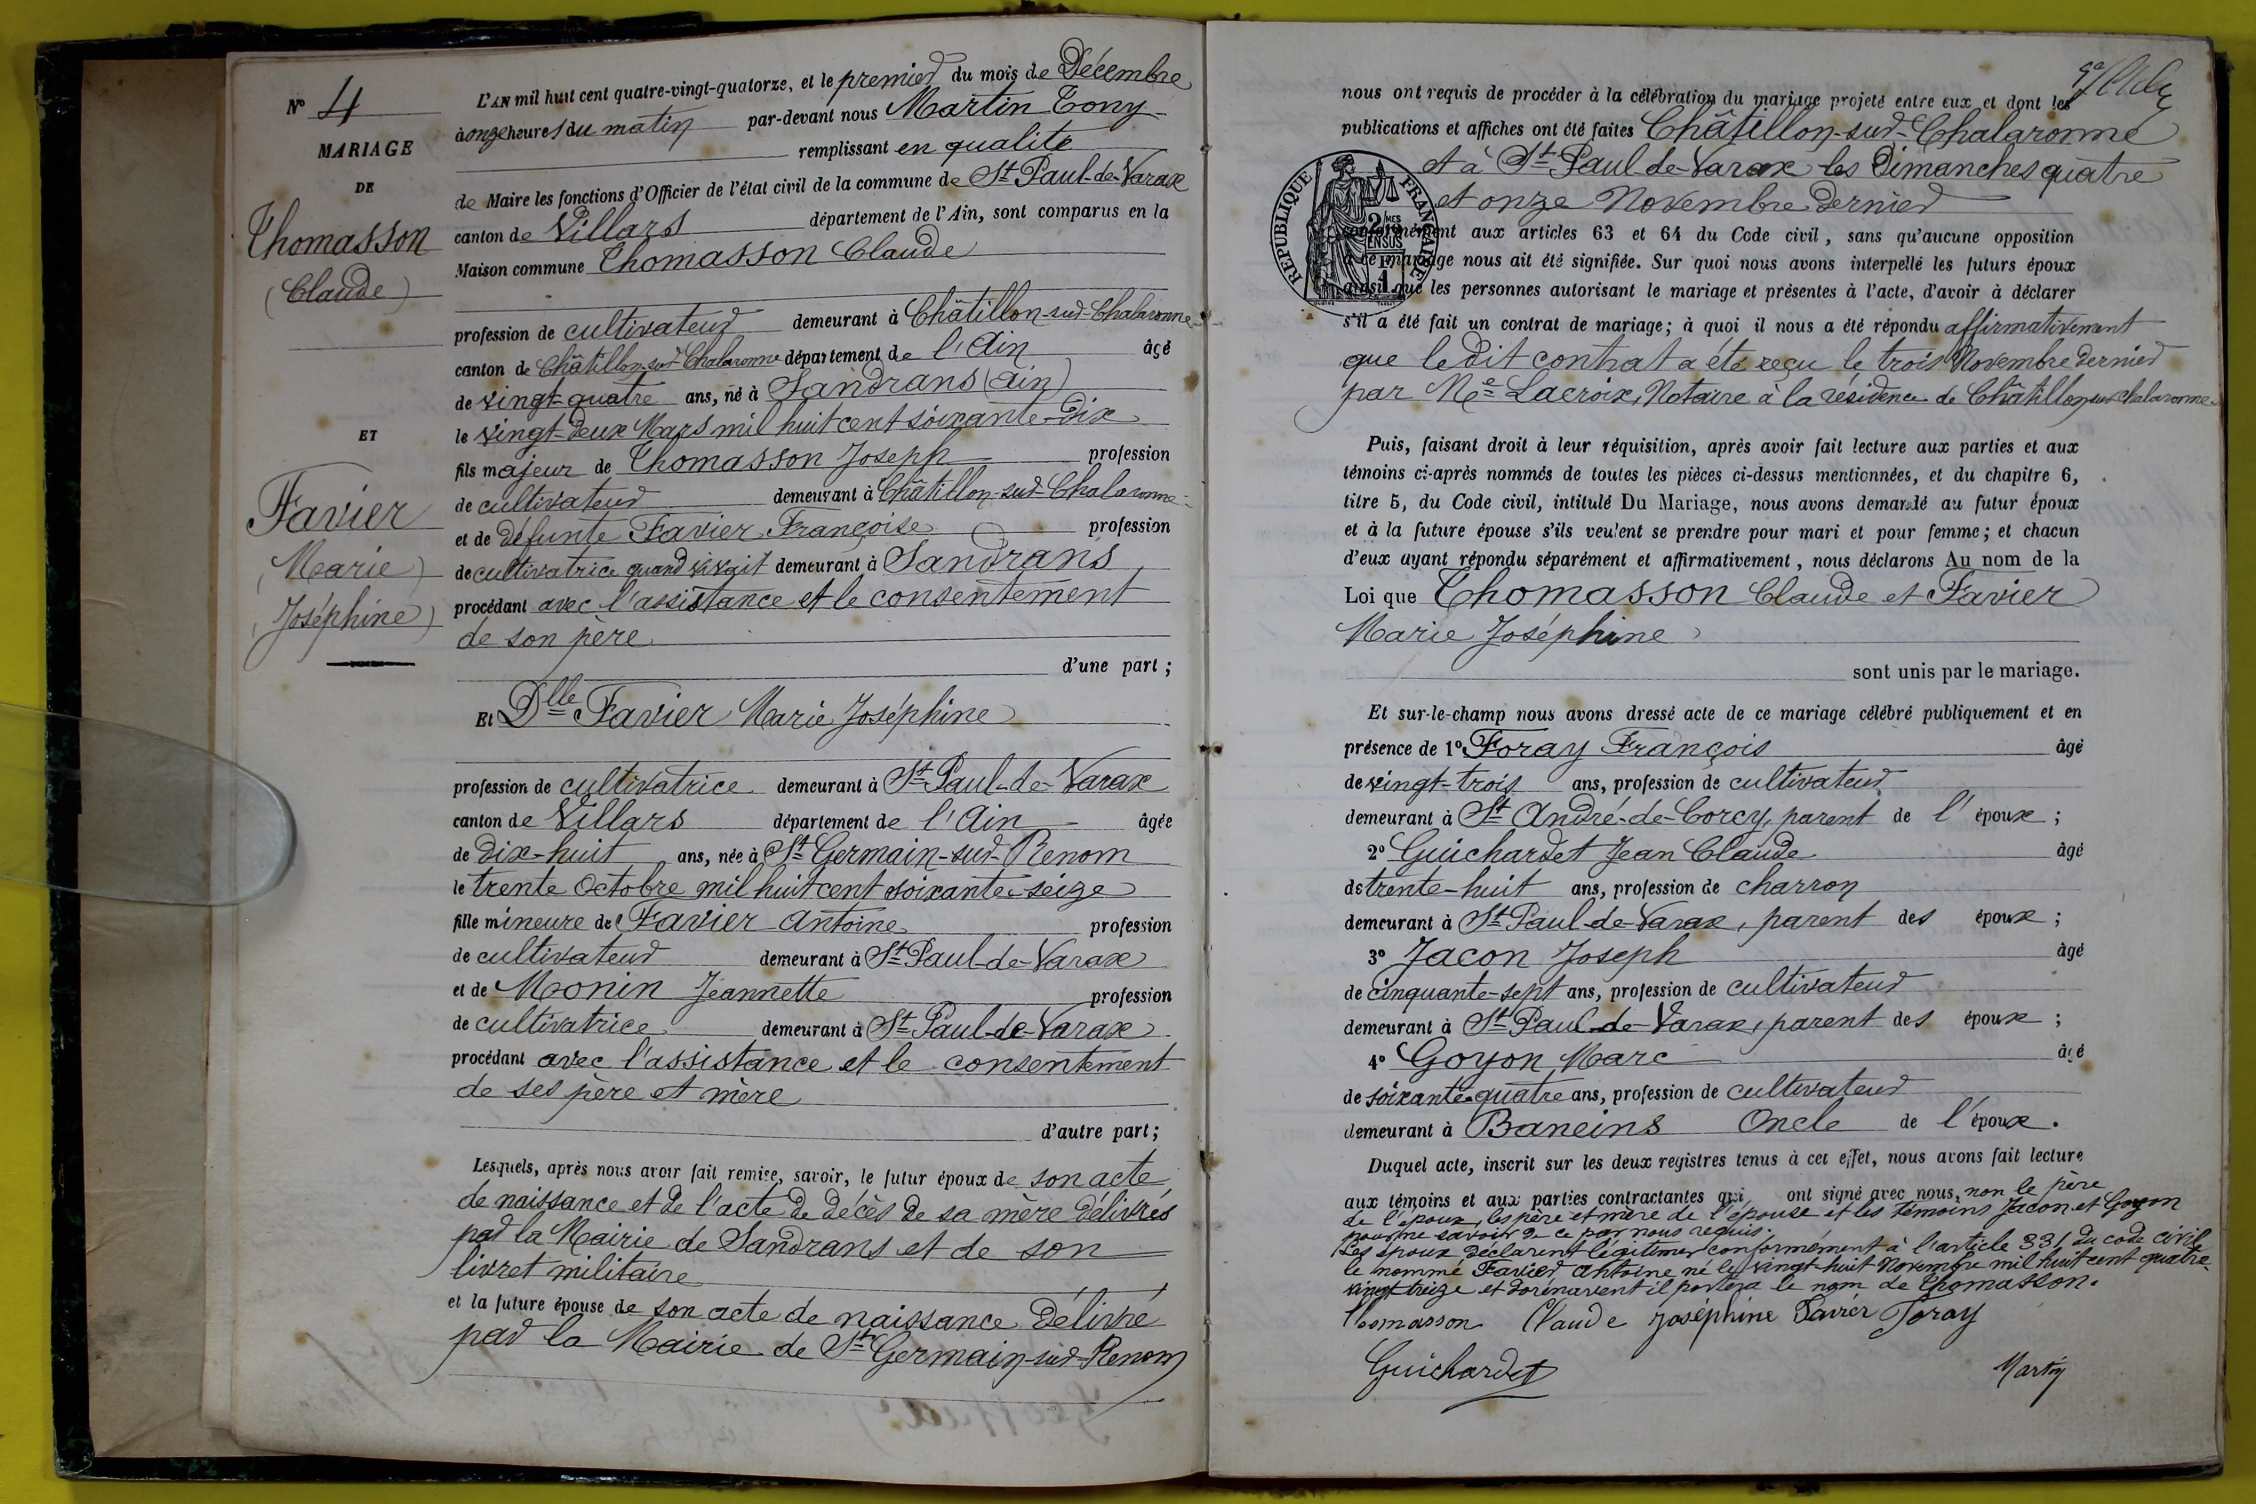 N° 4
MARIAGE
DE
Thomasson
(Claude)
ET
Favier
(Marie)
(Joséphine)
L'AN mil huit cent quatre-vingt-quatorze, et le premier du mois de Décembre
à onze heures du matin par-devant nous Martin Tony
remplissant en qualité
de Maire les fonctions d'Officier de l'état civil de la commune de St Paul-de-Varax
canton de Villars département de l'Ain, sont comparus en la
Maison commune Thomasson Claude
profession de cultivateur demeurant à Châtillon-sur-Chalaronne
canton de Châtillon-sur-Chalaronne département de l'Ain âgé
de vingt-quatre ans, né à Sandrans (Ain)
le vingt-deux Mars mil huit cent soixante-dix
fils majeur de Thomasson Joseph profession
de cultivateur demeurant à Châtillon-sur-Chalaronne
et de défunte Favier Françoise profession
de cultivatrice quand vivait demeurant à Sandrans
procédant avec l'assistance et le consentement
de son père
d'une part ;
Et Dlle Favier Marie Joséphine
profession de cultivatrice demeurant à St Paul-de-Varax
canton de Villars département de l'Ain âgée
de dix-huit ans, née à St Germain-sur-Renom
le trente Octobre mil huit cent soixante-seize
fille mineure de Favier Antoine profession
de cultivateur demeurant à St Paul-de-Varax
et de Monin Jeannette profession
de cultivatrice demeurant à St Paul-de-Varax
procédant avec l'assistance et le consentement
de ses père et mère
d'autre part ;
Lesquels, après nous avoir fait remise, savoir, le futur époux de son acte
de naissance et de l'acte de décès de sa mère délivrés
par la Mairie de Sandrans et de son
livret militaire
et la future épouse de son acte de naissance délivré
par la Mairie de St Germain-sur-Renom
nous ont requis de procéder à la célébration du mariage projeté entre eux et dont les
publications et affiches ont été faites Châtillon-sur-Chalaronne
et à St Paul-de-Varax les Dimanches quatre
et onze Novembre dernier
RÉPUBLIQUE FRANÇAISE
conformément aux articles 63 et 64 du Code civil, sans qu'aucune opposition
à ce mariage nous ait été signifiée. Sur quoi nous avons interpellé les futurs époux
ainsi que les personnes autorisant le mariage et présentes à l'acte, d'avoir à déclarer
s'il a été fait un contrat de mariage ; à quoi il nous a été répondu affirmativement
que le dit contrat a été reçu le trois Novembre dernier
par Me Lacroix, Notaire à la résidence de Châtillon sur Chalaronne
Puis, faisant droit à leur réquisition, après avoir fait lecture aux parties et aux
témoins ci-après nommés de toutes les pièces ci-dessus mentionnées, et du chapitre 6,
titre 5, du Code civil, intitulé Du Mariage, nous avons demandé au futur époux
et à la future épouse s'ils veulent se prendre pour mari et pour femme ; et chacun
d'eux ayant répondu séparément et affirmativement, nous déclarons Au nom de la
Loi que Thomasson Claude et Favier
Marie Joséphine
sont unis par le mariage.
Et sur-le-champ nous avons dressé acte de ce mariage célébré publiquement et en
présence de 1° Foray François âgé
de vingt-trois ans, profession de cultivateur
demeurant à St André-de-Corcy, parent de l'époux ;
2° Guichardet Jean Claude âgé
de trente-huit ans, profession de charron
demeurant à St Paul-de-Varax, parent des époux ;
3° Jacon Joseph âgé
de cinquante-sept ans, profession de cultivateur
demeurant à St Paul-de-Varax, parent des époux ;
4° Goyon Marc âgé
de soixante-quatre ans, profession de cultivateur
demeurant à Baneins Oncle de l'époux.
Duquel acte, inscrit sur les deux registres tenus à cet effet, nous avons fait lecture
aux témoins et aux parties contractantes qui ont signé avec nous, non le père
de l'époux, les père et mère de l'épouse et les témoins Jacon et Goyon
pour ne savoir de ce par nous requis.
Les époux déclarent légitimer conformément à l'article 331 du code civil
le nommé Favier Antoine né le vingt-huit Novembre mil huit cent quatre-
vingt-treize et dorénavent il portera le nom de Thomasson.
Thomasson Claude Joséphine Favier Foray
Guichardet Martin